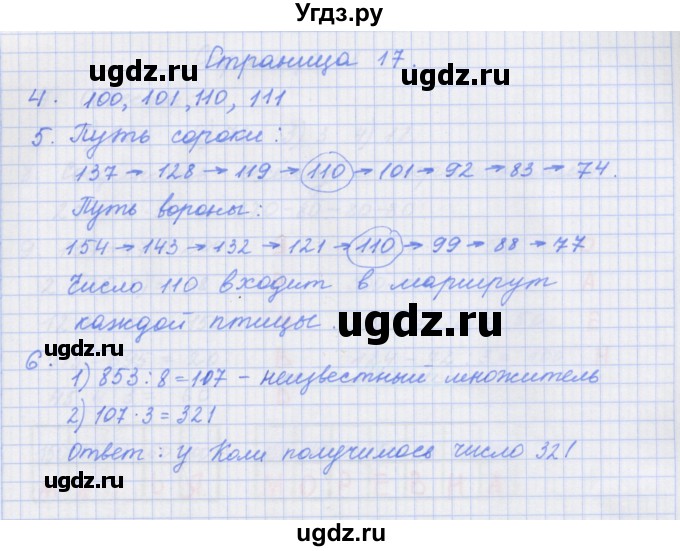 Угдз.ру
Страница 17.
4. 100, 101, 110, 111
5. Путь сороки:
137 → 128 → 119 → 110 → 101 → 92 → 83 → 74.
Путь вороны:
154 → 143 → 132 → 121 → 110 → 99 → 88 → 77
Число 110 входит в маршрут
каждой птицы.
6. 1) 853 : 8 = 107 – неизвестный множитель
2) 107 · 3 = 321
Ответ: у Коли получилось число 321
ugdz.ru
ugdz.ru
ugdz.ru
ugdz.ru
ugdz.ru
ugdz.ru
ugdz.ru
ugdz.ru
ugdz.ru